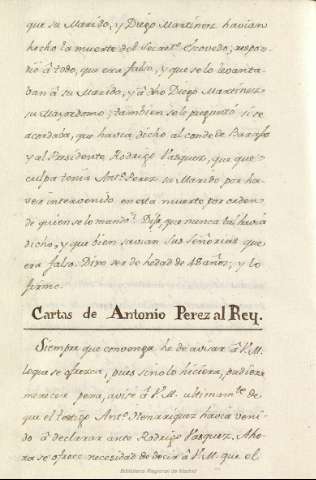 que su Marido, y Diego Martinez havian
hecho la muerte del Secret.º Escovedo; respon-
dió á todo, que era falso, y que se lo levanta-
ban á su Marido, y á dho Diego Martinez
su Mayordomo; tambien se le preguntó si se
acordaba, que havia dicho al conde de Barajas
y al Presidente Rodrigo Vazquez, que que
culpa tenia Ant.º Perez su Marido por ha-
ver intervenido en esta muerte por orden
de quien se lo mandó? Dijo, que nunca tal havia
dicho, y que bien savian Sus Señorias que
era falso. Dixo ser de hedad de 48 años; y lo
firmo.
Cartas de Antonio Perez al Rey.
Siempre que convenga, he de avisar á V.M.
lo que se ofrezca, pues si no lo hiciera, pudiera
merecer pena, avisé á V.M. ultimam.te de
que el testigo Ant.º Henrriquez havia veni-
do á declarar ante Rodrigo Vazquez. Aho-
ra se ofrece necesidad de decir á V.M. que el
Biblioteca Regional de Madrid